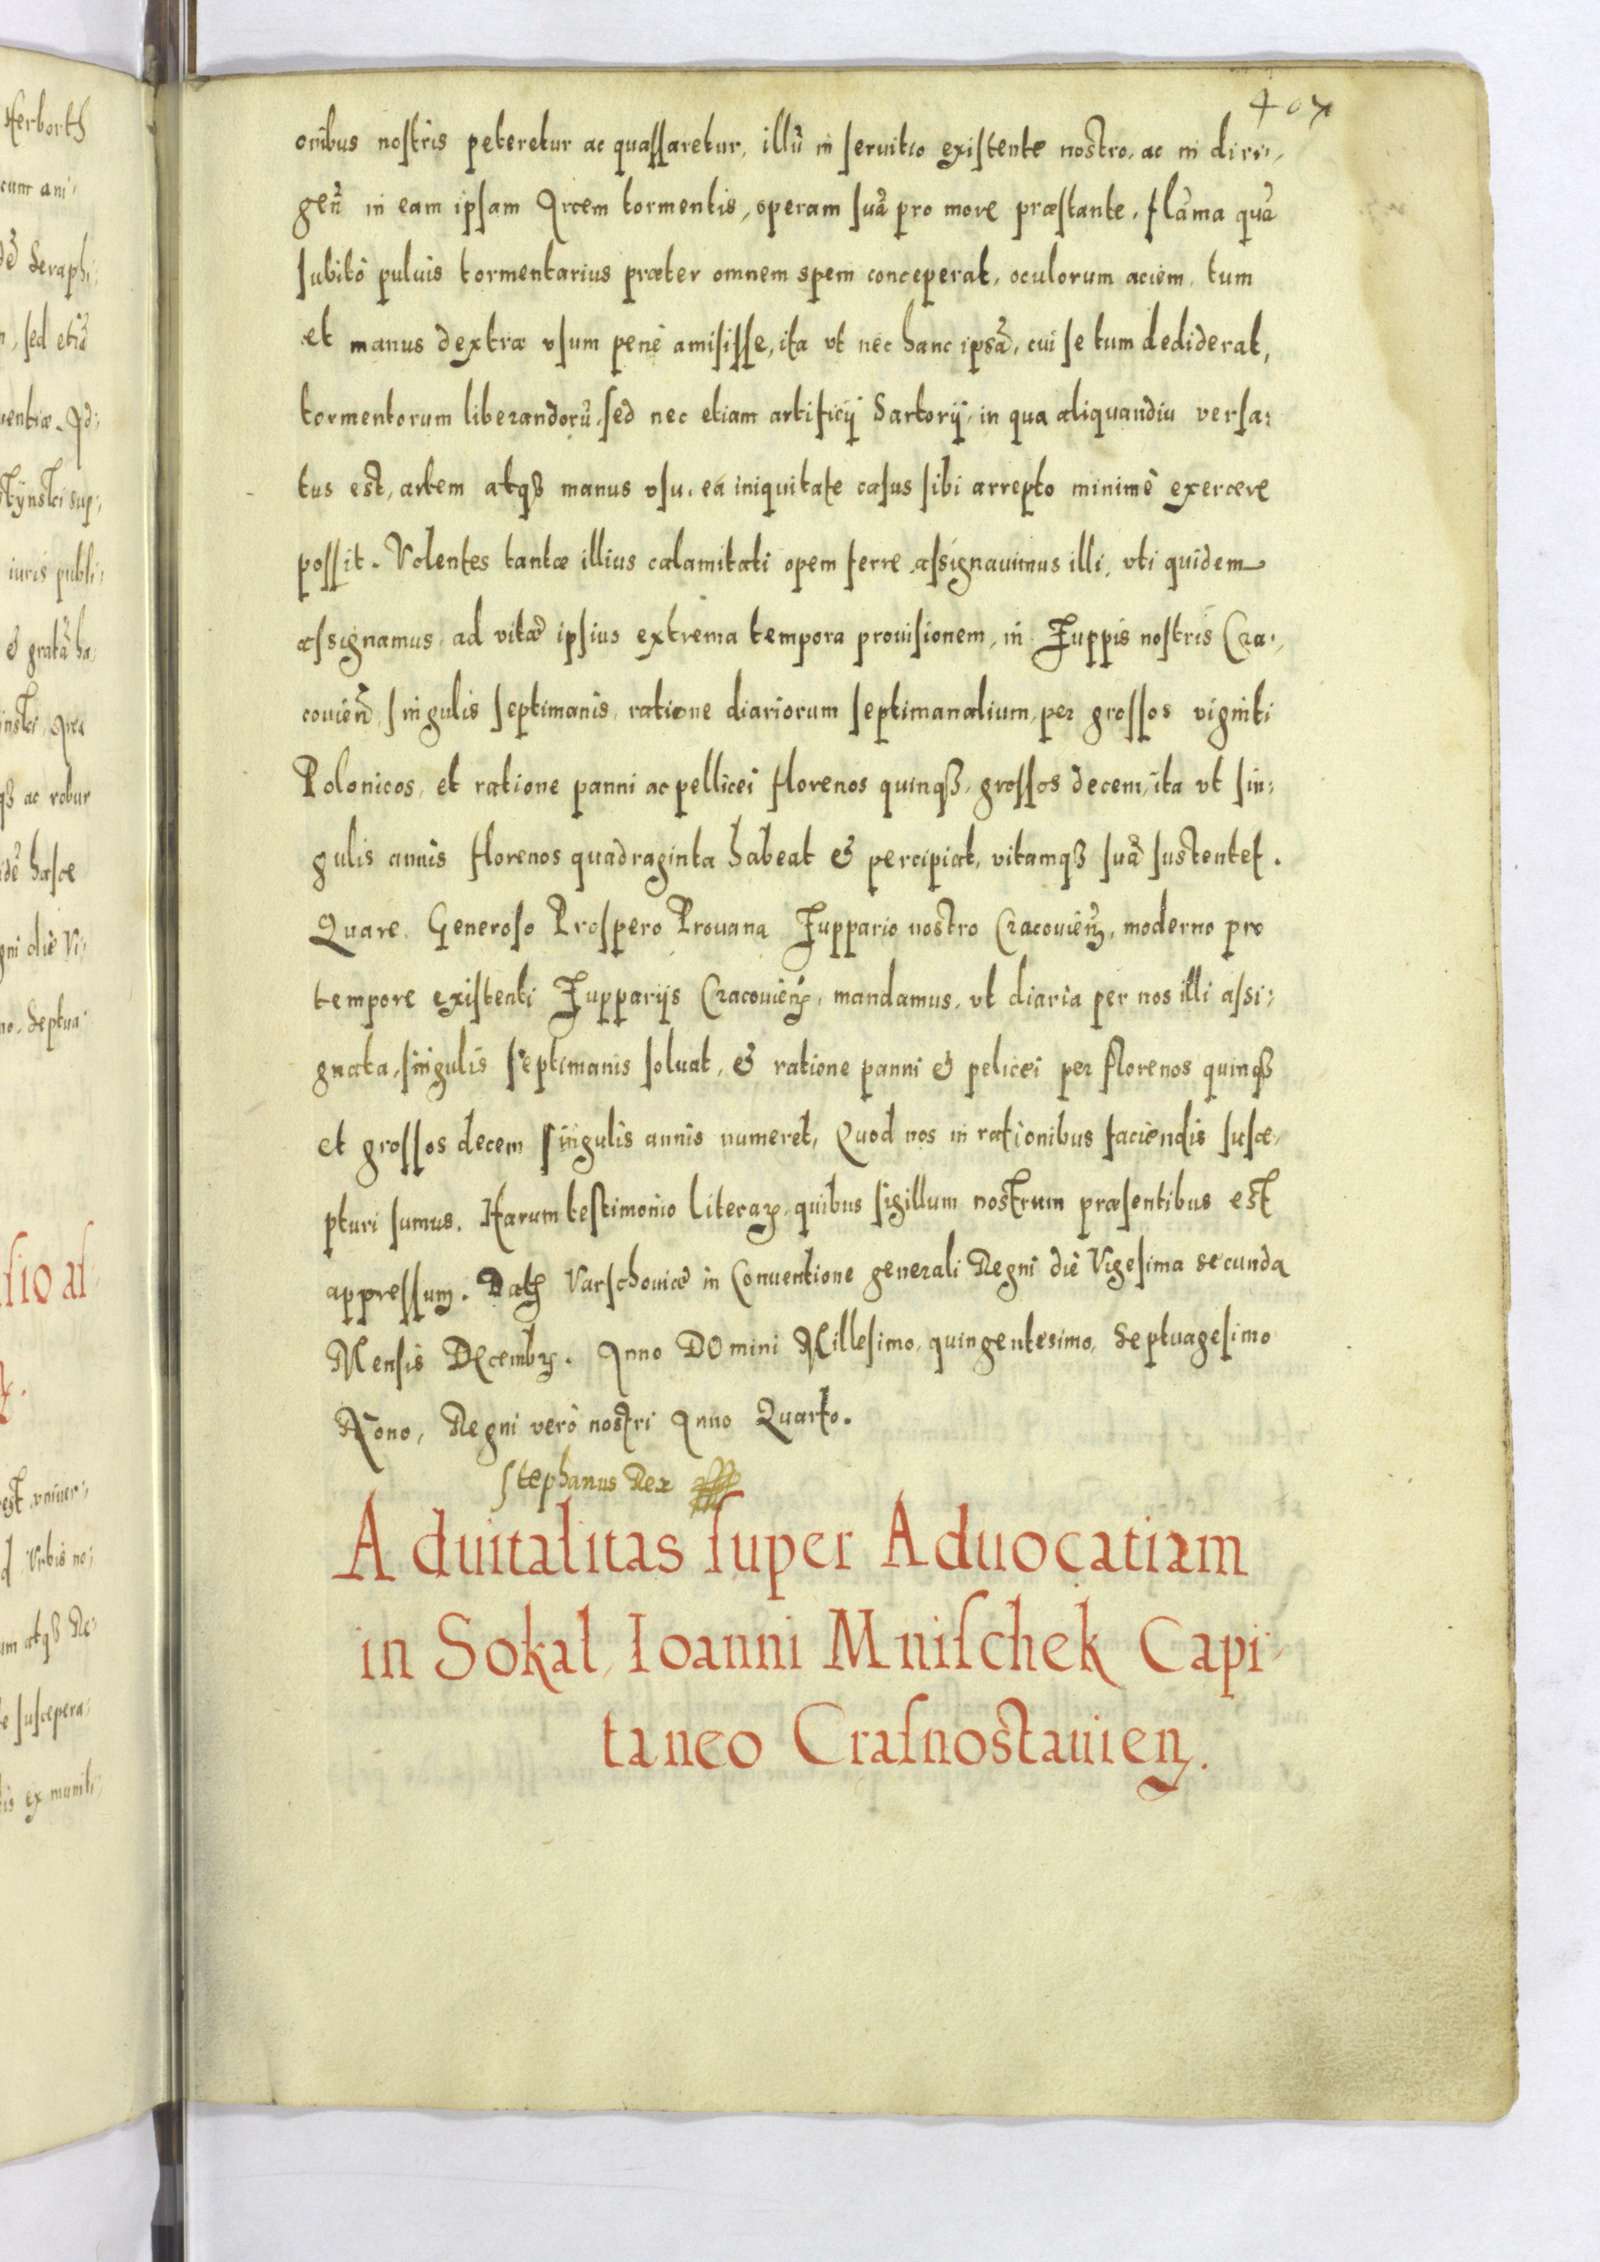 407
om̃ibus nostris peteretur ac quassaretur, illũ in seruitio existente nostro, ac in diri-
geñ in eam ipsam Arcem tormentis, operam suã pro more præstante, flãma quã
subitô puluis tormentarius præter omnem spem conceperat, oculorum aciem, tum
et manus dextræ vsum penè amisisse, ita vt nec hanc ipsã, cui se tum dediderat,
tormentorum liberandorũ, sed nec etiam artificij Sartorij, in qua aliquandiu versa:
tus est, artem atqȝ manus vsu, eà iniquitate casus sibi arrepto minimè exercere
possit. Volentes tantæ illius calamitati opem ferre, assignauimus illi, vti quidem
assignamus, ad vitæ ipsius extrema tempora prouisionem, in Juppis nostris Cra-
couieñ, singulis septimanis, ratione diariorum septimanalium, per grossos viginti
Polonicos, et ratione panni ac pellicei florenos quinqȝ, grossos decem, ita vt sin:
gulis annis florenos quadraginta habeat & percipiat, vitamqȝ suã sustentet.
Quare, Generoso Prospero Prouana Juppario nostro Cracouieñ, moderno pro
tempore existenti Juppariis Cracouieñ, mandamus, vt diaria per nos illi assi:
gnata, singulis septimanis soluat, & ratione panni & pelicei per florenos quinqȝ
et grossos decem singulis annis numeret, Quod nos in rationibus faciendis susce-
pturi sumus. Harum testimonio literaꝝ, quibus sigillum nostrum præsentibus est
appressum. Datꝭ Varschouiæ in Conuentione generali Regni die Vigesima secunda
Mensis Decembꝝ. Anno DOmini Millesimo, quingentesimo, Septuagesimo
Nono, Regni verò nostri Anno Quarto.
Stephanus Rex
Aduitalitas super Aduocatiam
in Sokal, Ioanni Mnischek Capi-
taneo Crasnostauień.